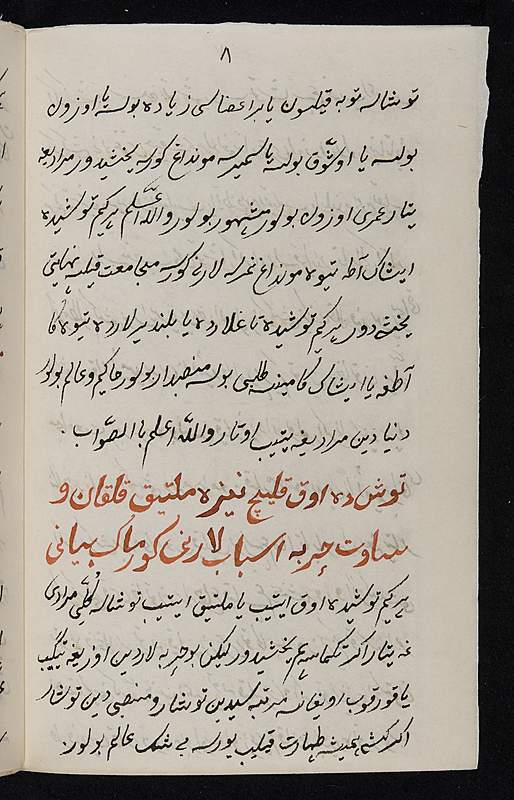 ٨
توشاسه توبه قیلسون یا بر اعضاسی زیاده بولسه یا اوزون
بولسه یا اوشوق بولسه یا سمیرسه مونداغ کورسه یخشیدور مرادیغه
یتار عمری اوزون بولور مشهور بولور والله اعلم هر کیم توشیده
ایشاک آطه تیوه مونداغ نمرسه لارنی کورسه مجامعت قیلسه نهایتی
یخشی دور هر کیم توشیده تاغلارده یا بلند یرلارده تیوه کا
آطغه یا ایشاک کا مینسه طلبی بولسه منصبدار بولور حاکم و عالم بولور
دنیا دین مرادیغه یتیب اوتار والله اعلم باالصّواب.
توش ده اوق قلیچ نیزه ملتیق قلقان و
ساوت حربه اسباب لارنی کورماک بیانی
هر کیم توشیده اوق ایتیب یا ملتیق ایتیب توشاسه کُلّی مرادی
غه یتار اکر تکماسه هم یخشیدور لیکن بو حربه لاردین اوزیغه تیکیب
یا قورقوب اویغانسه مرتبه سیدین توشار و منصبی دین توشار
اکر کشی همیشه طهارت قیلیب یورسه بی شک عالم بولور